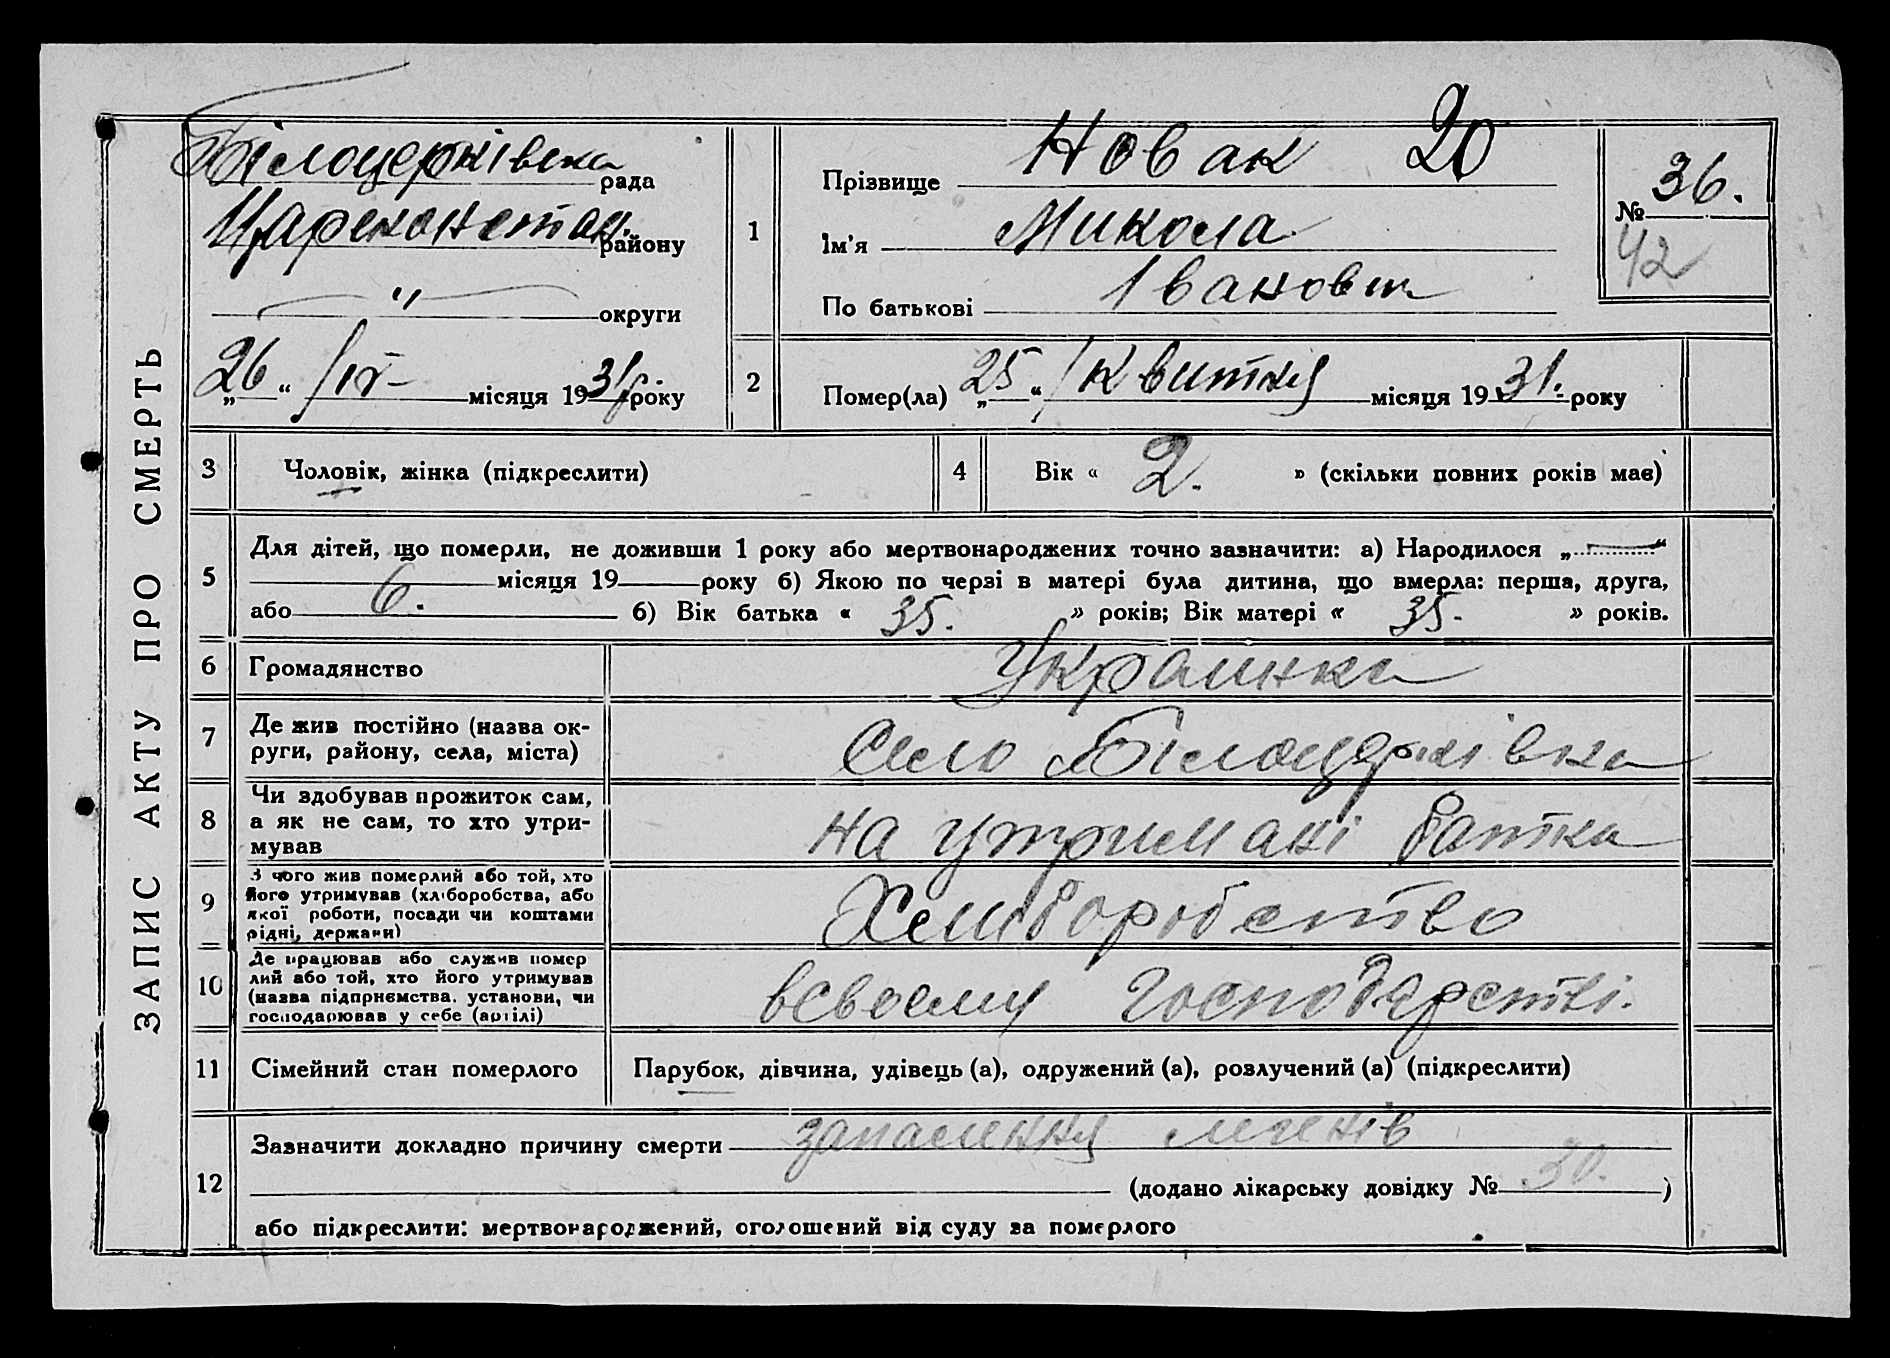 ЗАПИС АКТУ ПРО СМЕРТЬ
Білоцерківска рада
Цареконстан. району
" округи
„26“ IV місяця 1931 року
1
Прізвище Новак 20
Ім'я Микола
По батькові Іванович
№ 36.
42
2
Помер(ла) „25“ Квитня місяця 1931. року
3 Чоловік, жінка (підкреслити)
4 Вік « 2. » (скільки повних років має)
5
Для дітей, що померли, не доживши 1 року або мертвонароджених точно зазначити: а) Народилося „ — “
місяця 19 року б) Якою по черзі в матері була дитина, що вмерла: перша, друга,
або 6. б) Вік батька « 35. » років; Вік матері « 35. » років.
6 Громадянство Украинка
7 Де жив постійно (назва ок-
руги, району, села, міста)
Село Білоцерківка
8 Чи здобував прожиток сам,
а як не сам, то хто утри-
мував
на утримані батка
9 З чого жив померлий або той, хто
його утримував (хліборобства, або
якої роботи, посади чи коштами
рідні, держави)
Хлиборобство
10 Де працював або служив помер
лий або той, хто його утримував
(назва підприємства. установи, чи
господарював у себе (артілі)
всвоему господарстві.
11 Сімейний стан померлого Парубок, дівчина, удівець (а), одружений (а), розлучений (а) (підкреслити)
12
Зазначити докладно причину смерти запалення легенів
(додано лікарську довідку № 30. )
або підкреслити: мертвонароджений, оголошений від суду за померлого